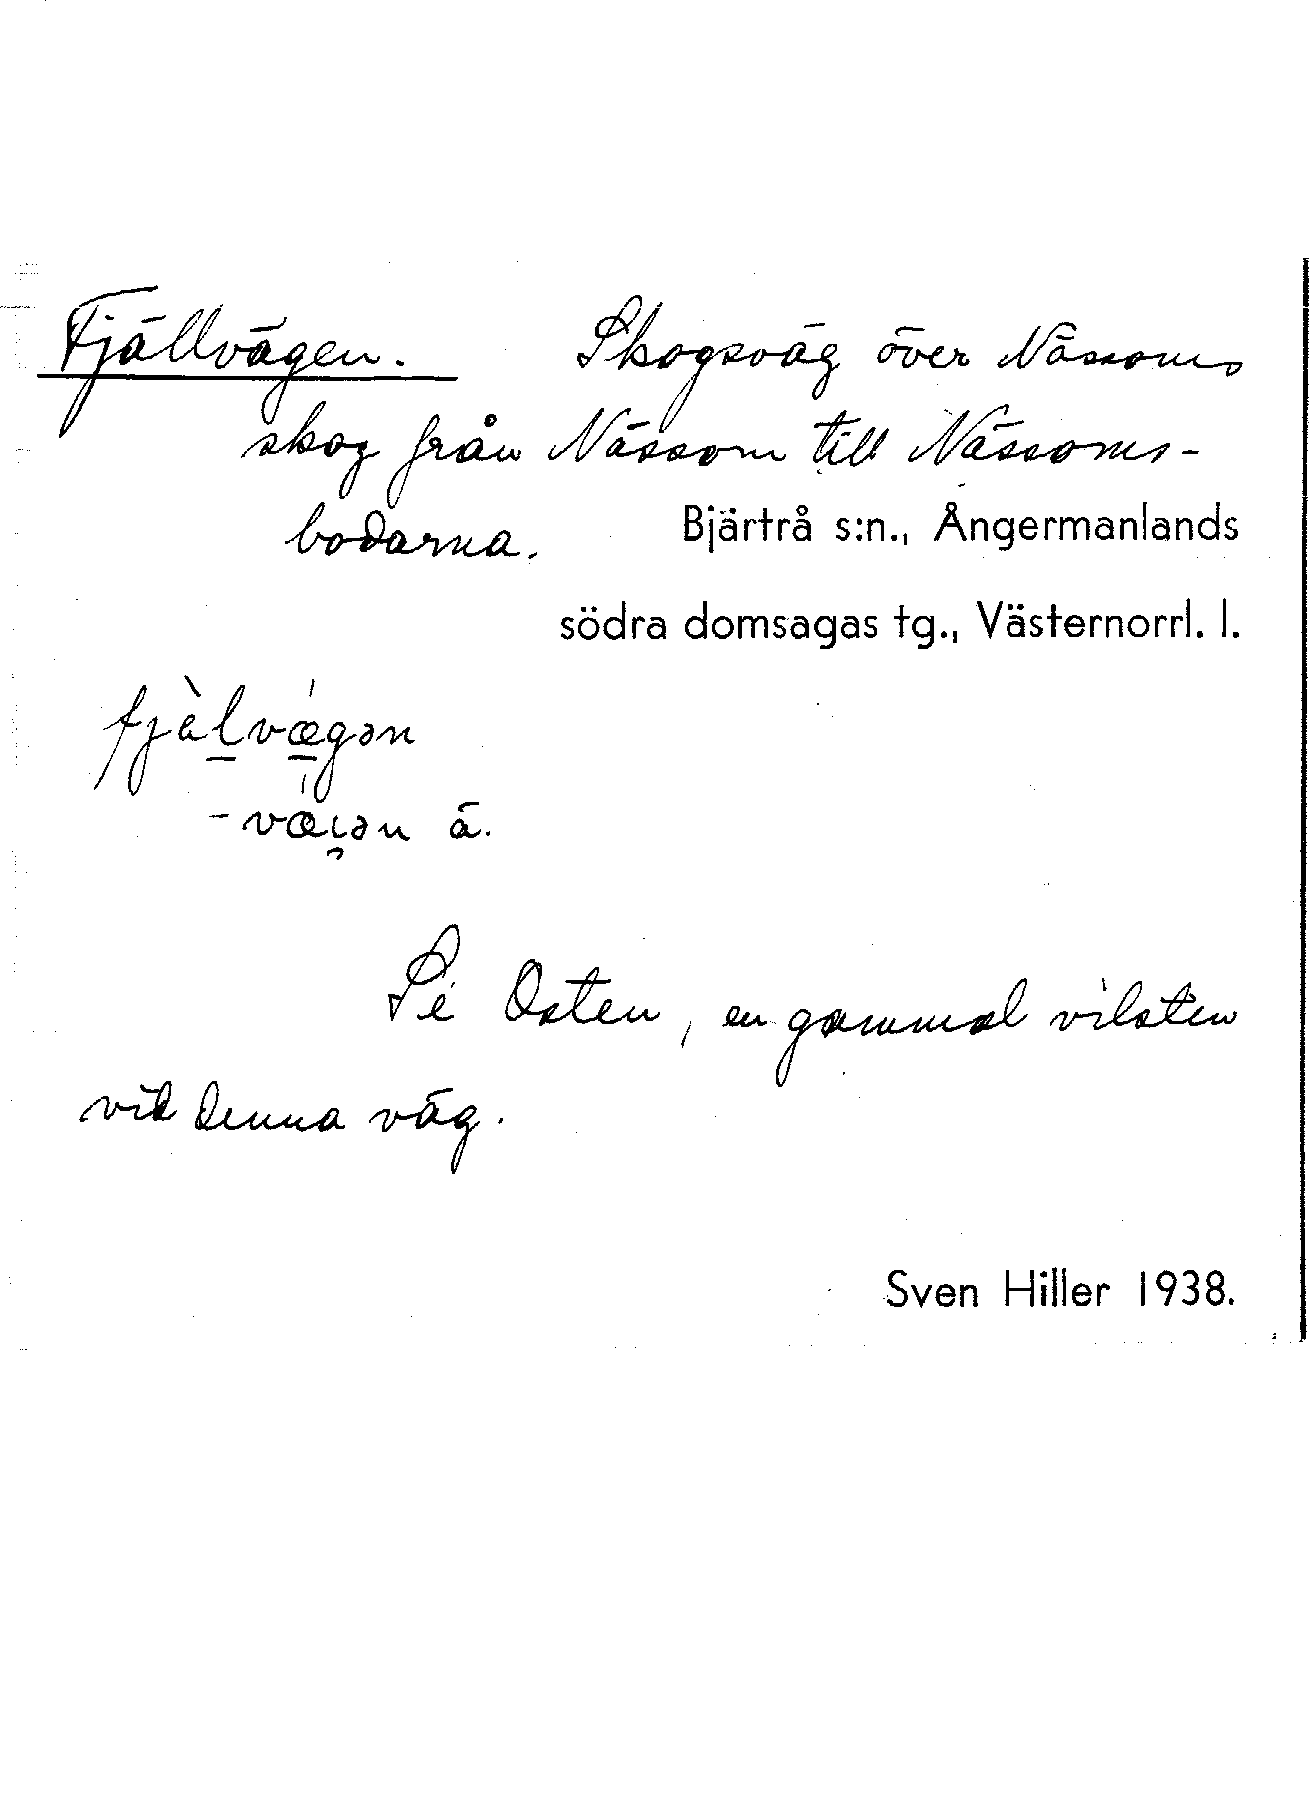 Fjällvägen. Skogsväg över Nässoms
skog från Nässom till Nässoms-
bodarna.
Bjärtrå s:n., Ångermanlands
södra domsagas tg., Västernorrl. l.
fjälvægən
-væɩən ä.
Se Osten, en gammal vilsten
vid denna väg.
Sven Hiller 1938.